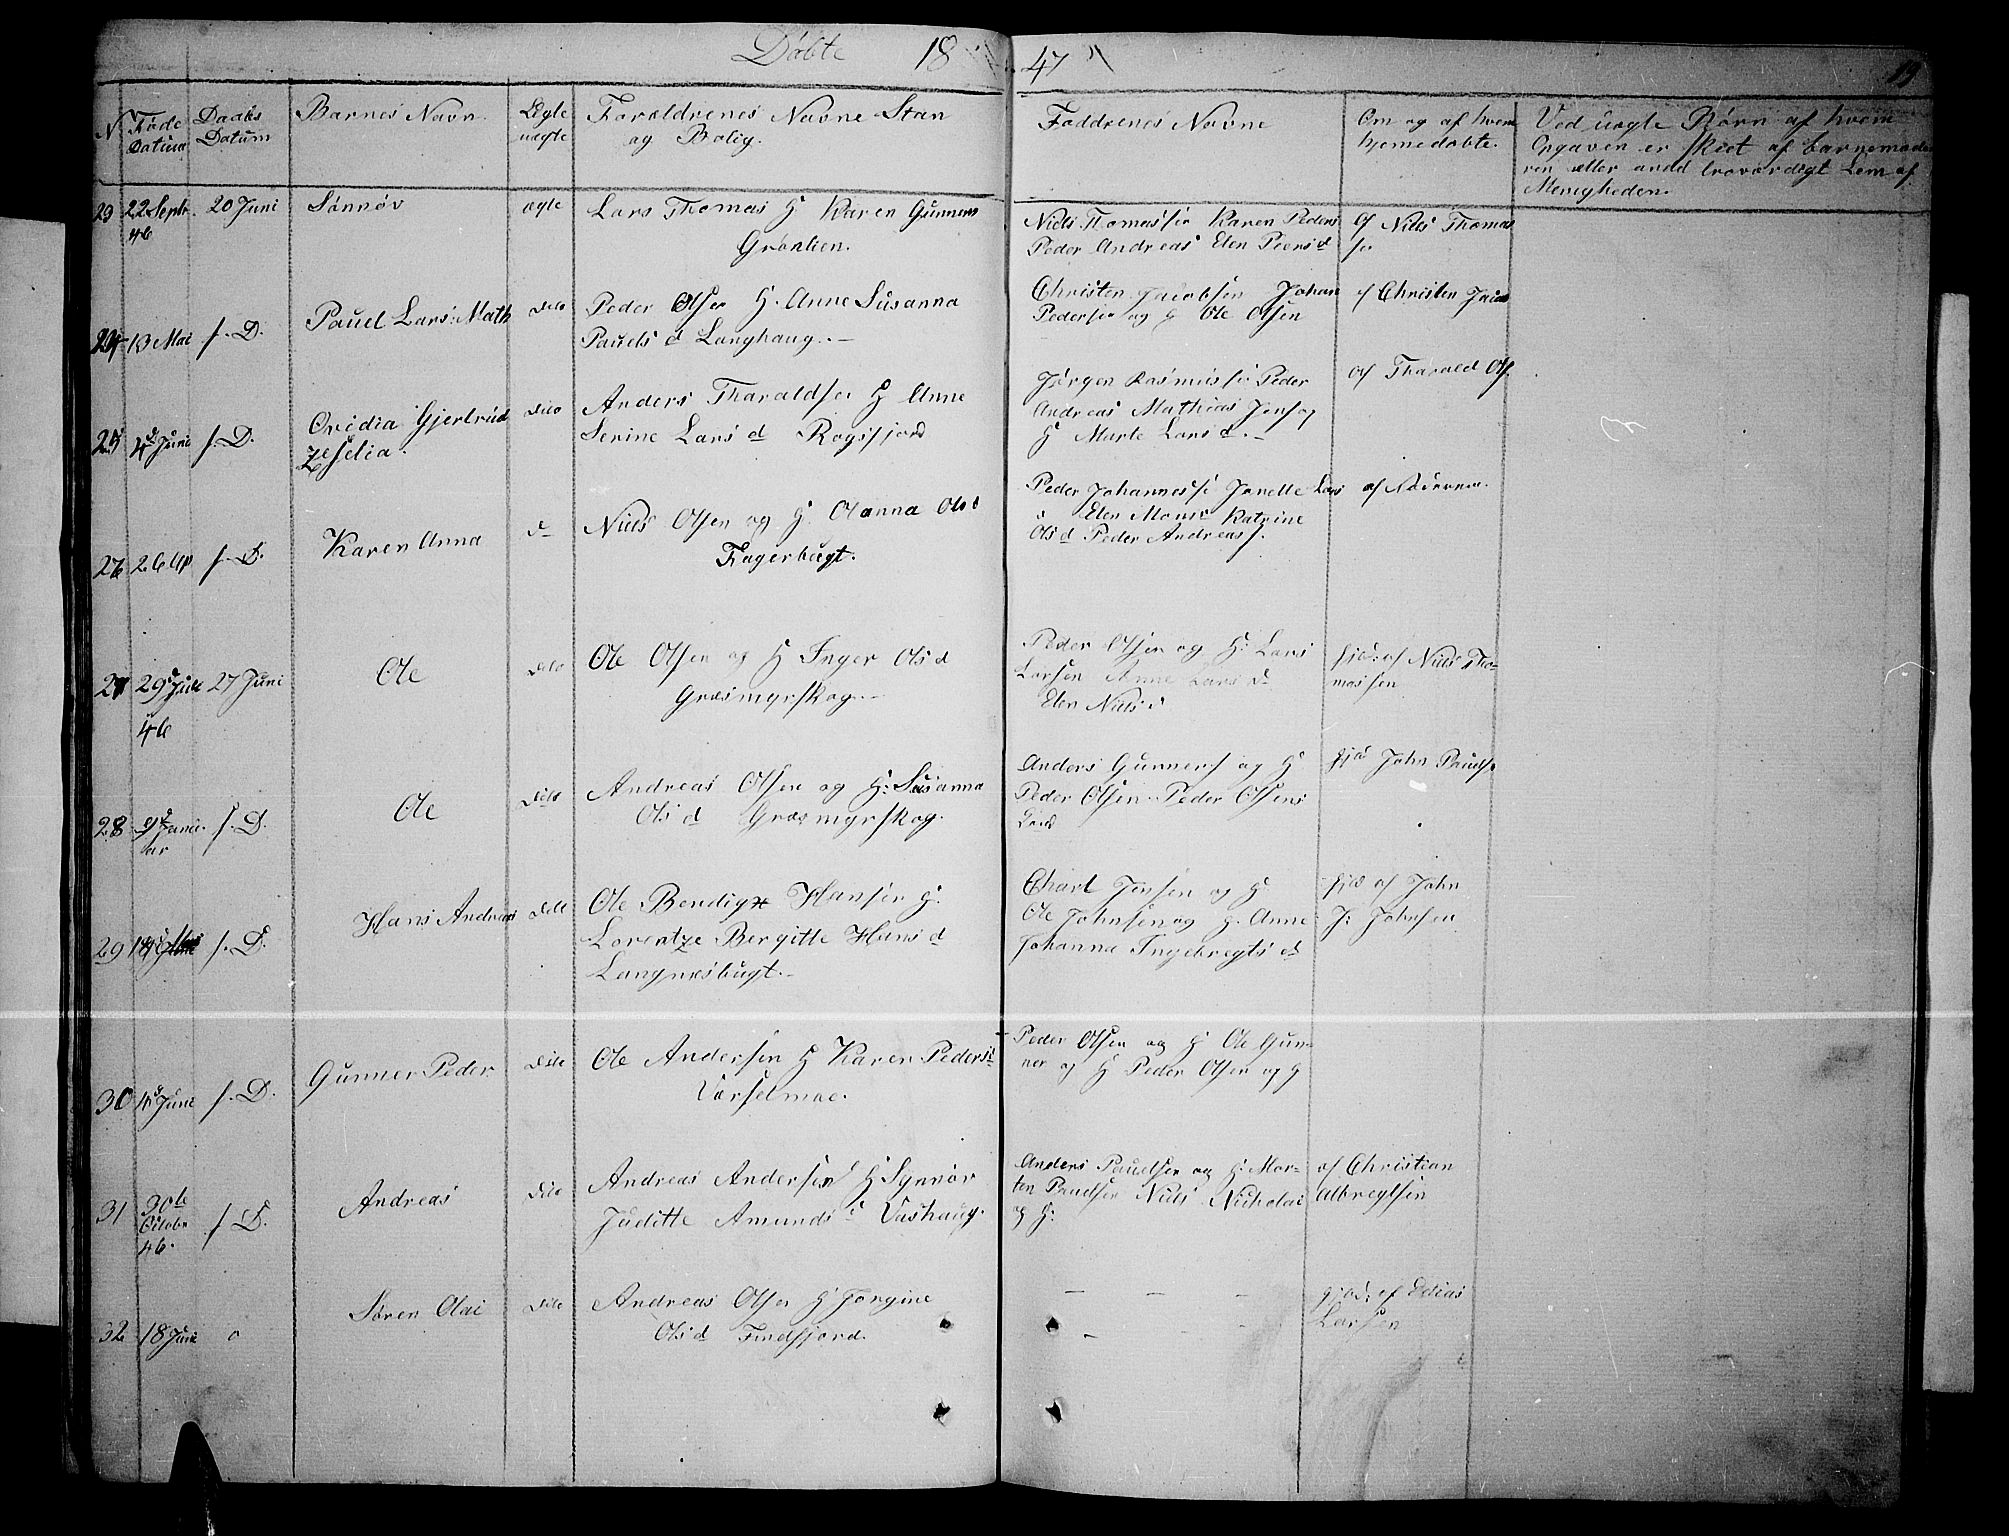 Döbte 18 47
19
N Föde Datum
Daabs Datum
Barnes Navn
Ægte uægte
Foræeldrenes Navne Stan og Bolig.
Fadderenes Navne
Om og af hvem hjemedöbte.
Ved uægte Börn af hvem Opgaven er skeet af barnemode ren æller andd troværdigt Lem af Menigheden.
23 22 Septr. 46 20 Juni Sönnöv ægte
Lars Thomas H Karen Gunners
Grönlien.
Niels Thomasse Karen Peders
Peder Andreas Elen Peers d
af Niels Thomas
se
24 13 Mai s. D. Paul Lars Math dito
Peder Olsen H. Anne Susanna
Pauels d Langhaug. –
Christen Jacobsen Johan
Pederse og H Ole Olsen
af Christen Jacob
25 4 d Juni s. D. Ovidia Gjertrud dito
Zeselia.
Anders Tharaldsen H Anne
Serine Lars d Rogsfjord
Jörgen Rasmusse Peder
Andreas Mathias Jens og
H Marte Lars d. –
af Tharald Ols.
26 26 Ap s. D. Karen Anna d–
Niels Olsen og H. Olanna Ols d
Fagerbugt.
Peder Johannesse Jonette Lars
d Elen Mons Katrine
Ols d Peder Andreas s.
af Faderen.
27 29 d Juli 46 27 Juni Ole dito
Ole Olsen og H Inger Ols d
Græsmyrskog. –
Peder Olsen og H. Lars
Larsen Anne Lars d
Elen Niels d
hjd: af Niels Tho-
massen
28 9 d Janu ar s. D. Ole dito
Andreas Olsen og H. Susanna
Ols d Græsmyrskog.
Anders Gunners og H
Peder Olsen Peder Olsens
hjd John Pauls
29 s. D. Hans Andreas dito
Ole Bendigx Hansen H.
Lorentze Bergitte Hans d
Langnæsbugt. –
Charl Jensen og H.
Ole Johnsen og H. Anne
Johanna Ingebregts d
hjd af John
J: Johnsen
30 4 d Juni s. D. Gunner Peder dito
Ole Andersen H Karen Peders d
Vorselmoe.
Peder Olsen og H Ole Gun-
ner og H Peder Olsen og H
31 30 te Octobr 46. s. D. Andreas dito
Andreas Andersen H Synnör
Juditte Amunds d Vashaug.
Anders Pauelsen og H. Mor-
ten Pauelsen Niels Nicholai
og H.
af Christian
Albregtsen
32 18 Juni o Sören Olai dito
Andreas Olsen H Jörgine
Ols d Findfjord.
– – –
– – –
hjd: af Edias
Larsen